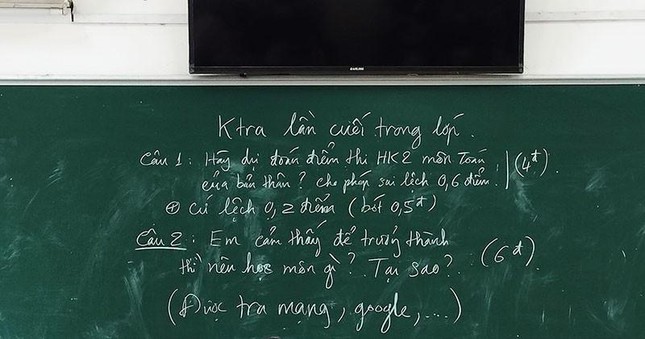 SAMSUNG
Ktra lần cuối trong lớp.
Câu 1: Hãy dự đoán điểm thi HK2 môn Toán (4đ)
của bản thân? cho phép sai lệch 0,6 điểm!
⊕ Cứ lệch 0,2 điểm (bớt 0,5đ)
Câu 2: Em cảm thấy để trưởng thành
thì nên học môn gì? Tại sao? (6đ)
(Được tra mạng, google,....)